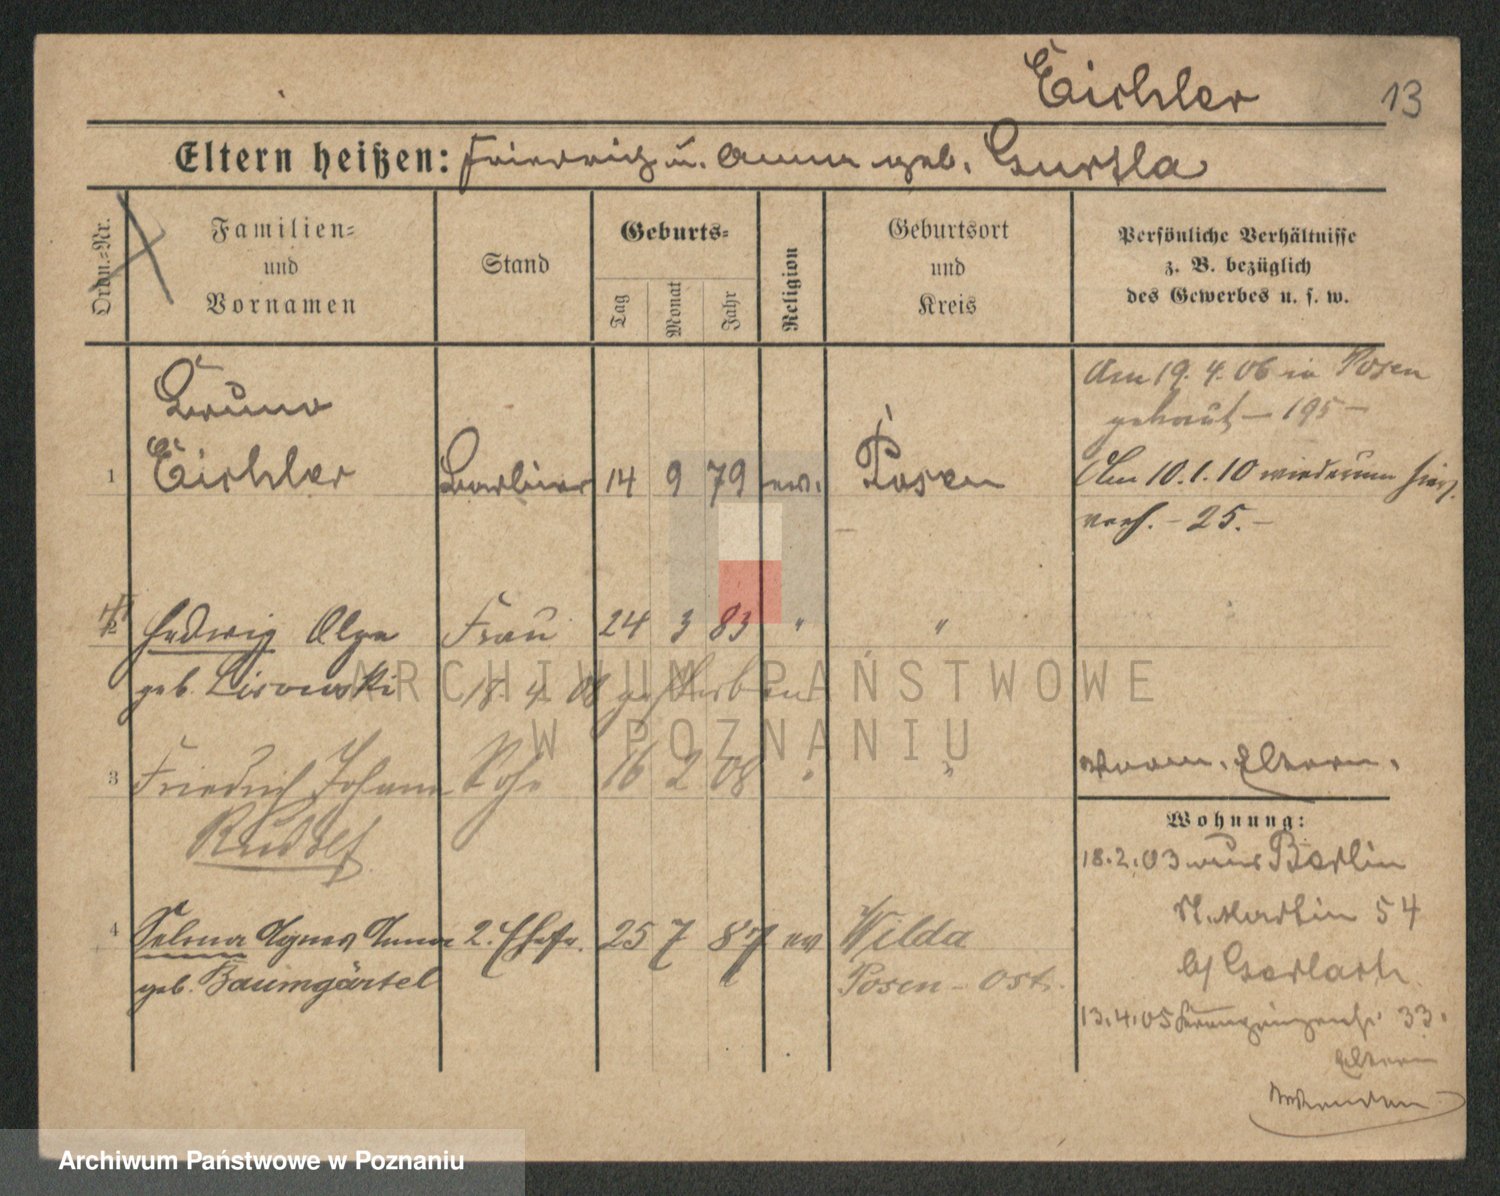 Eichler 13
Eltern heißen: Friedrich u. Anna geb.
Ordn.=Nr.
Familien=
und
Vornamen
Stand
Geburts=
Tag
Monat
Jahr
Religion
Geburtsort
und
Kreis
Persönliche Verhältnisse
z. B. bezüglich
des Gewerbes u. s. w.
Am 19. 4. 06 in Posen
getraut – 195 –
Bruno
1 Eichler Barbier 14 9 79 ev. Posen
Am 10. 1. 10 wiederum hier
verh. – 25. –
2 Hedwig Olga Frau 24 3 83 " "
geb. Lisowski 18. 4. 08 gestorben
3 Friedrich Johann Sohn 16 2 08 " "
Rudolf
4 Selma Agnes Anna 2. Ehefr. 25 7 87 ev Wilda
geb. Baumgärtel Posen - Ost.
Eltern.
Wohnung:
18. 2. 03 aus Berlin
St. Martin 54
b/ Gerlach
13. 4. 05 33.
Eltern
ARCHIWUM PAŃSTWOWE
W POZNANIU
Archiwum Państwowe w Poznaniu